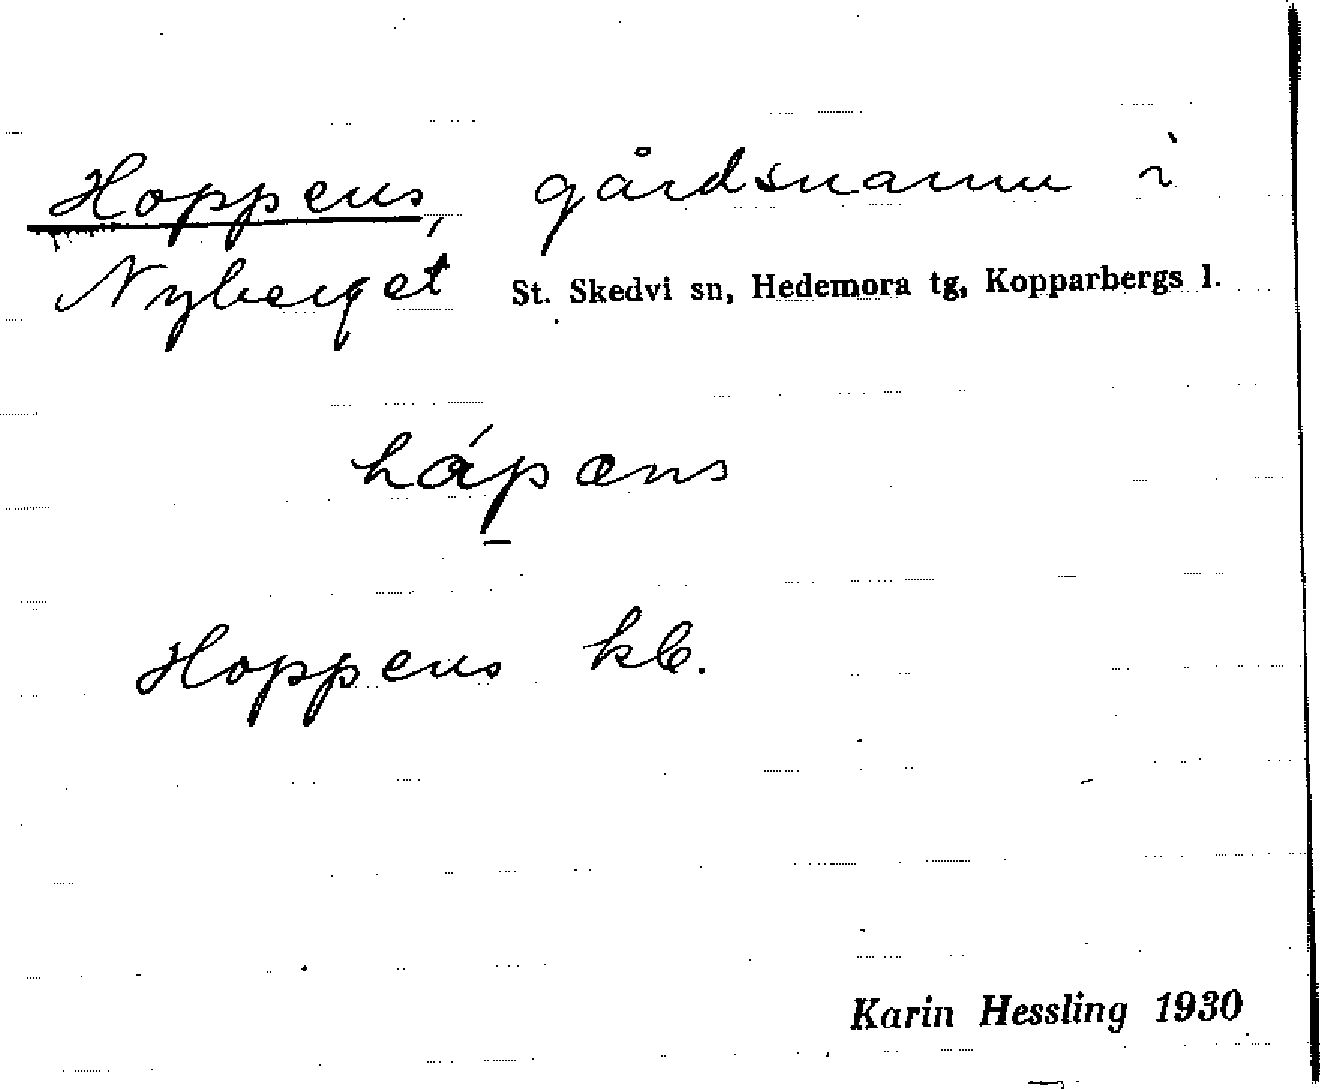 Hoppens, gårdsnamn i
Nyberget St. Skedvi sn, Hedemora tg, Kopparbergs l.
hápæns
Hoppens kb.
Karin Hessling 1930